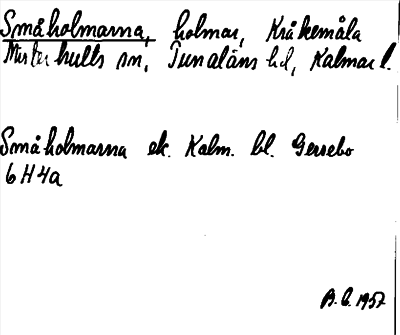 Småholmarna, holmar, Kråkemåla
Misterhults sn, Tunaläns hd, Kalmar l.
Småholmarna ek. Kalm. bl. Gersebo
6 H 4a
B. C. 1957